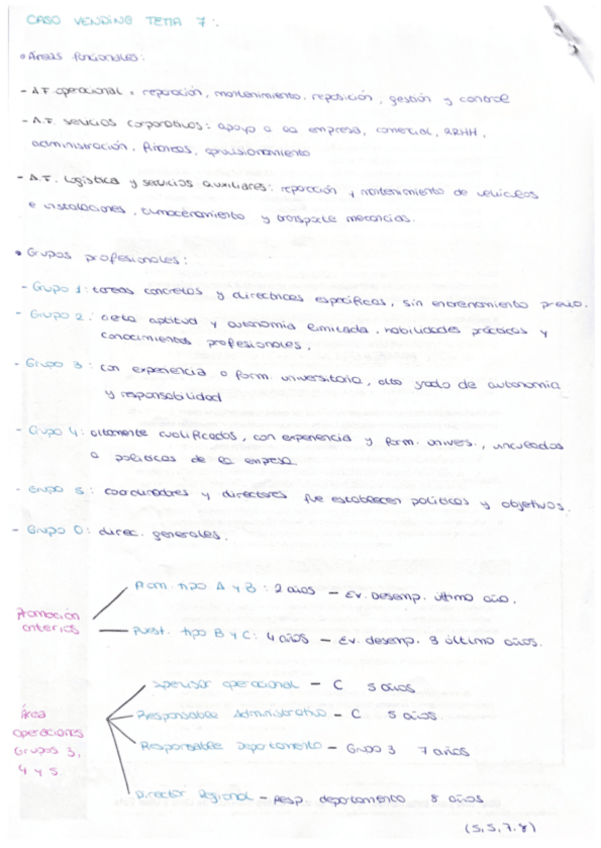 CASO VENDING TEMA 7:
• Áreas funcionales:
- A.F operacional = reparación, mantenimiento, reposición, gestión y control
- A.F. servicios corporativos: apoyo a la empresa, comercial, RRHH,
administración, finanzas, aprovisionamiento
- A.F. Logística y servicios auxiliares: reparación y mantenimiento de vehículos
e instalaciones, almacenamiento y transporte mercancías.
• Grupos profesionales:
- Grupo 1: tareas concretas y directrices específicas, sin entrenamiento previo.
- Grupo 2: cierta aptitud y autonomía limitada, habilidades prácticas y
conocimientos profesionales.
- Grupo 3: con experiencia o form. universitaria, alto grado de autonomía
y responsabilidad
- Grupo 4: altamente cualificados, con experiencia y form. univers., vinculados
a políticas de la empresa
- Grupo 5: coordinadores y directores que establecen políticas y objetivos.
- Grupo 0: direc. generales.
Promoción
criterios
Prom. tipo A y B: 2 años - Ev. Desemp. último año.
Puest. tipo B y C: 4 años - Ev. desemp. 3 último años.
Área
operaciones
Grupos 3,
4 y 5
Supervisor operacional - C 5 años
Responsable Administrativo - C 5 años
Responsable Departamento - Grupo 3 7 años
Director Regional - Resp. departamento 8 años
(5,5,7,8)